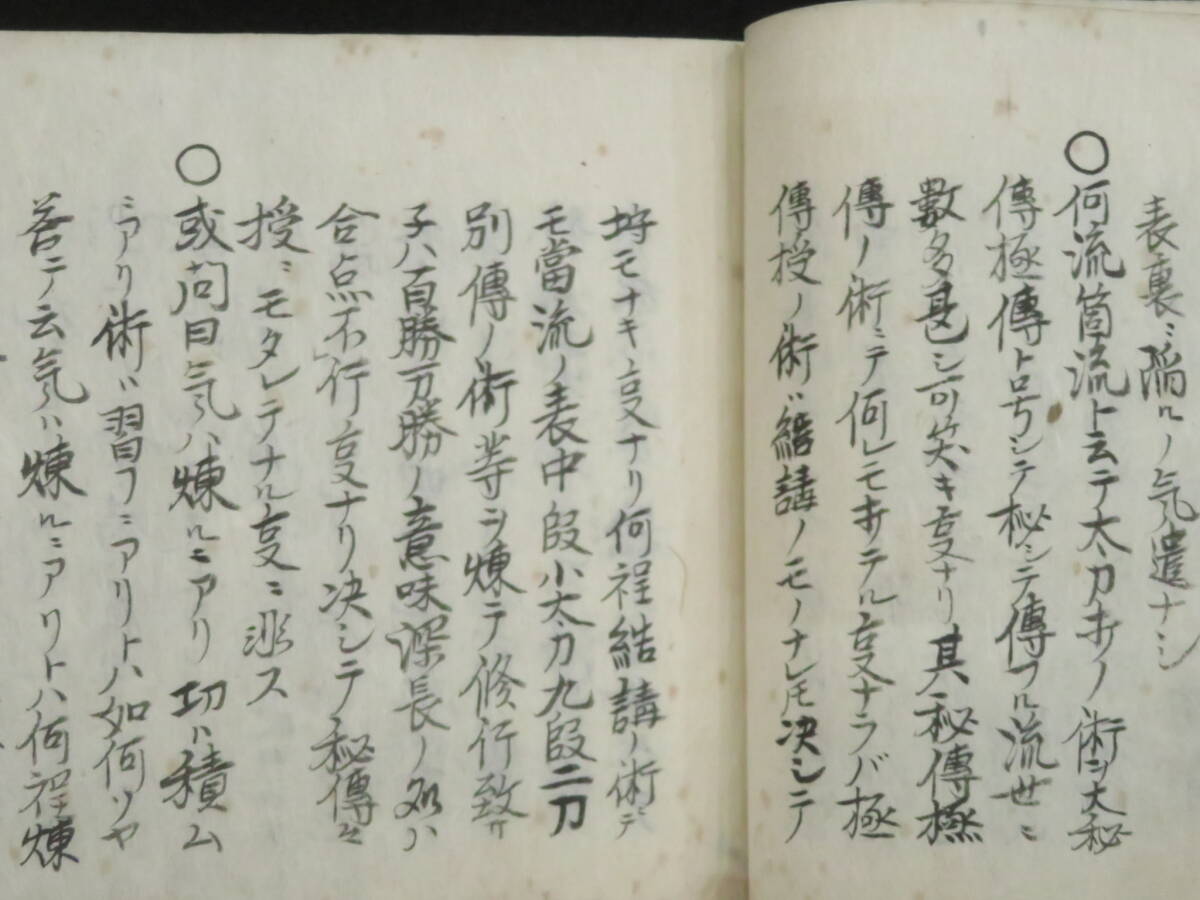 表裏ニ陥ルノ気遣ナシ
○何流箇流ト云テ太刀打ノ術ヲ大秘
傳極傳ト号シテ秘シテ傳フル流世ニ
數多甚シ可笑キ亥ナリ其秘傳極
傳ノ術ニテ何レモ打テル亥ナラバ極
傳授ノ術ハ結講ノモノナレモ决シテ
埒モナキ亥ナリ何程結講ノ術ニテ
モ當流ノ表中段小太刀九段二刀
別傳ノ術等ヲ煉テ修行致サ
子ハ百勝万勝ノ意味深長ノ処ハ
合点不行亥ナリ决シテ秘傳々
授ニモタレテナル亥ニ非ス
○或問曰気ハ煉ルニアリ功ハ積ム
ニアリ術ハ習フニアリトハ如何ソヤ
答テ云気ハ煉ルニアリトハ何程煉